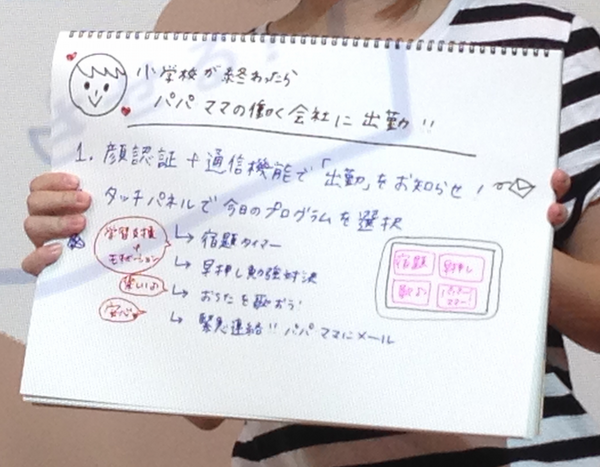 小学校が終わったら
パパ ママの働く会社に出勤!!
1. 顔認証+通信機能で「出勤」をお知らせ!
タッチパネルで今日のプログラムを選択
学習支援
+
モチベーション
→ 宿題タイマー
→ 早押し勉強対決
楽しいよ
→ おうたを歌おう!
安心
→ 緊急連絡!! パパママにメール
宿題
早押し
歌おう
パパママ